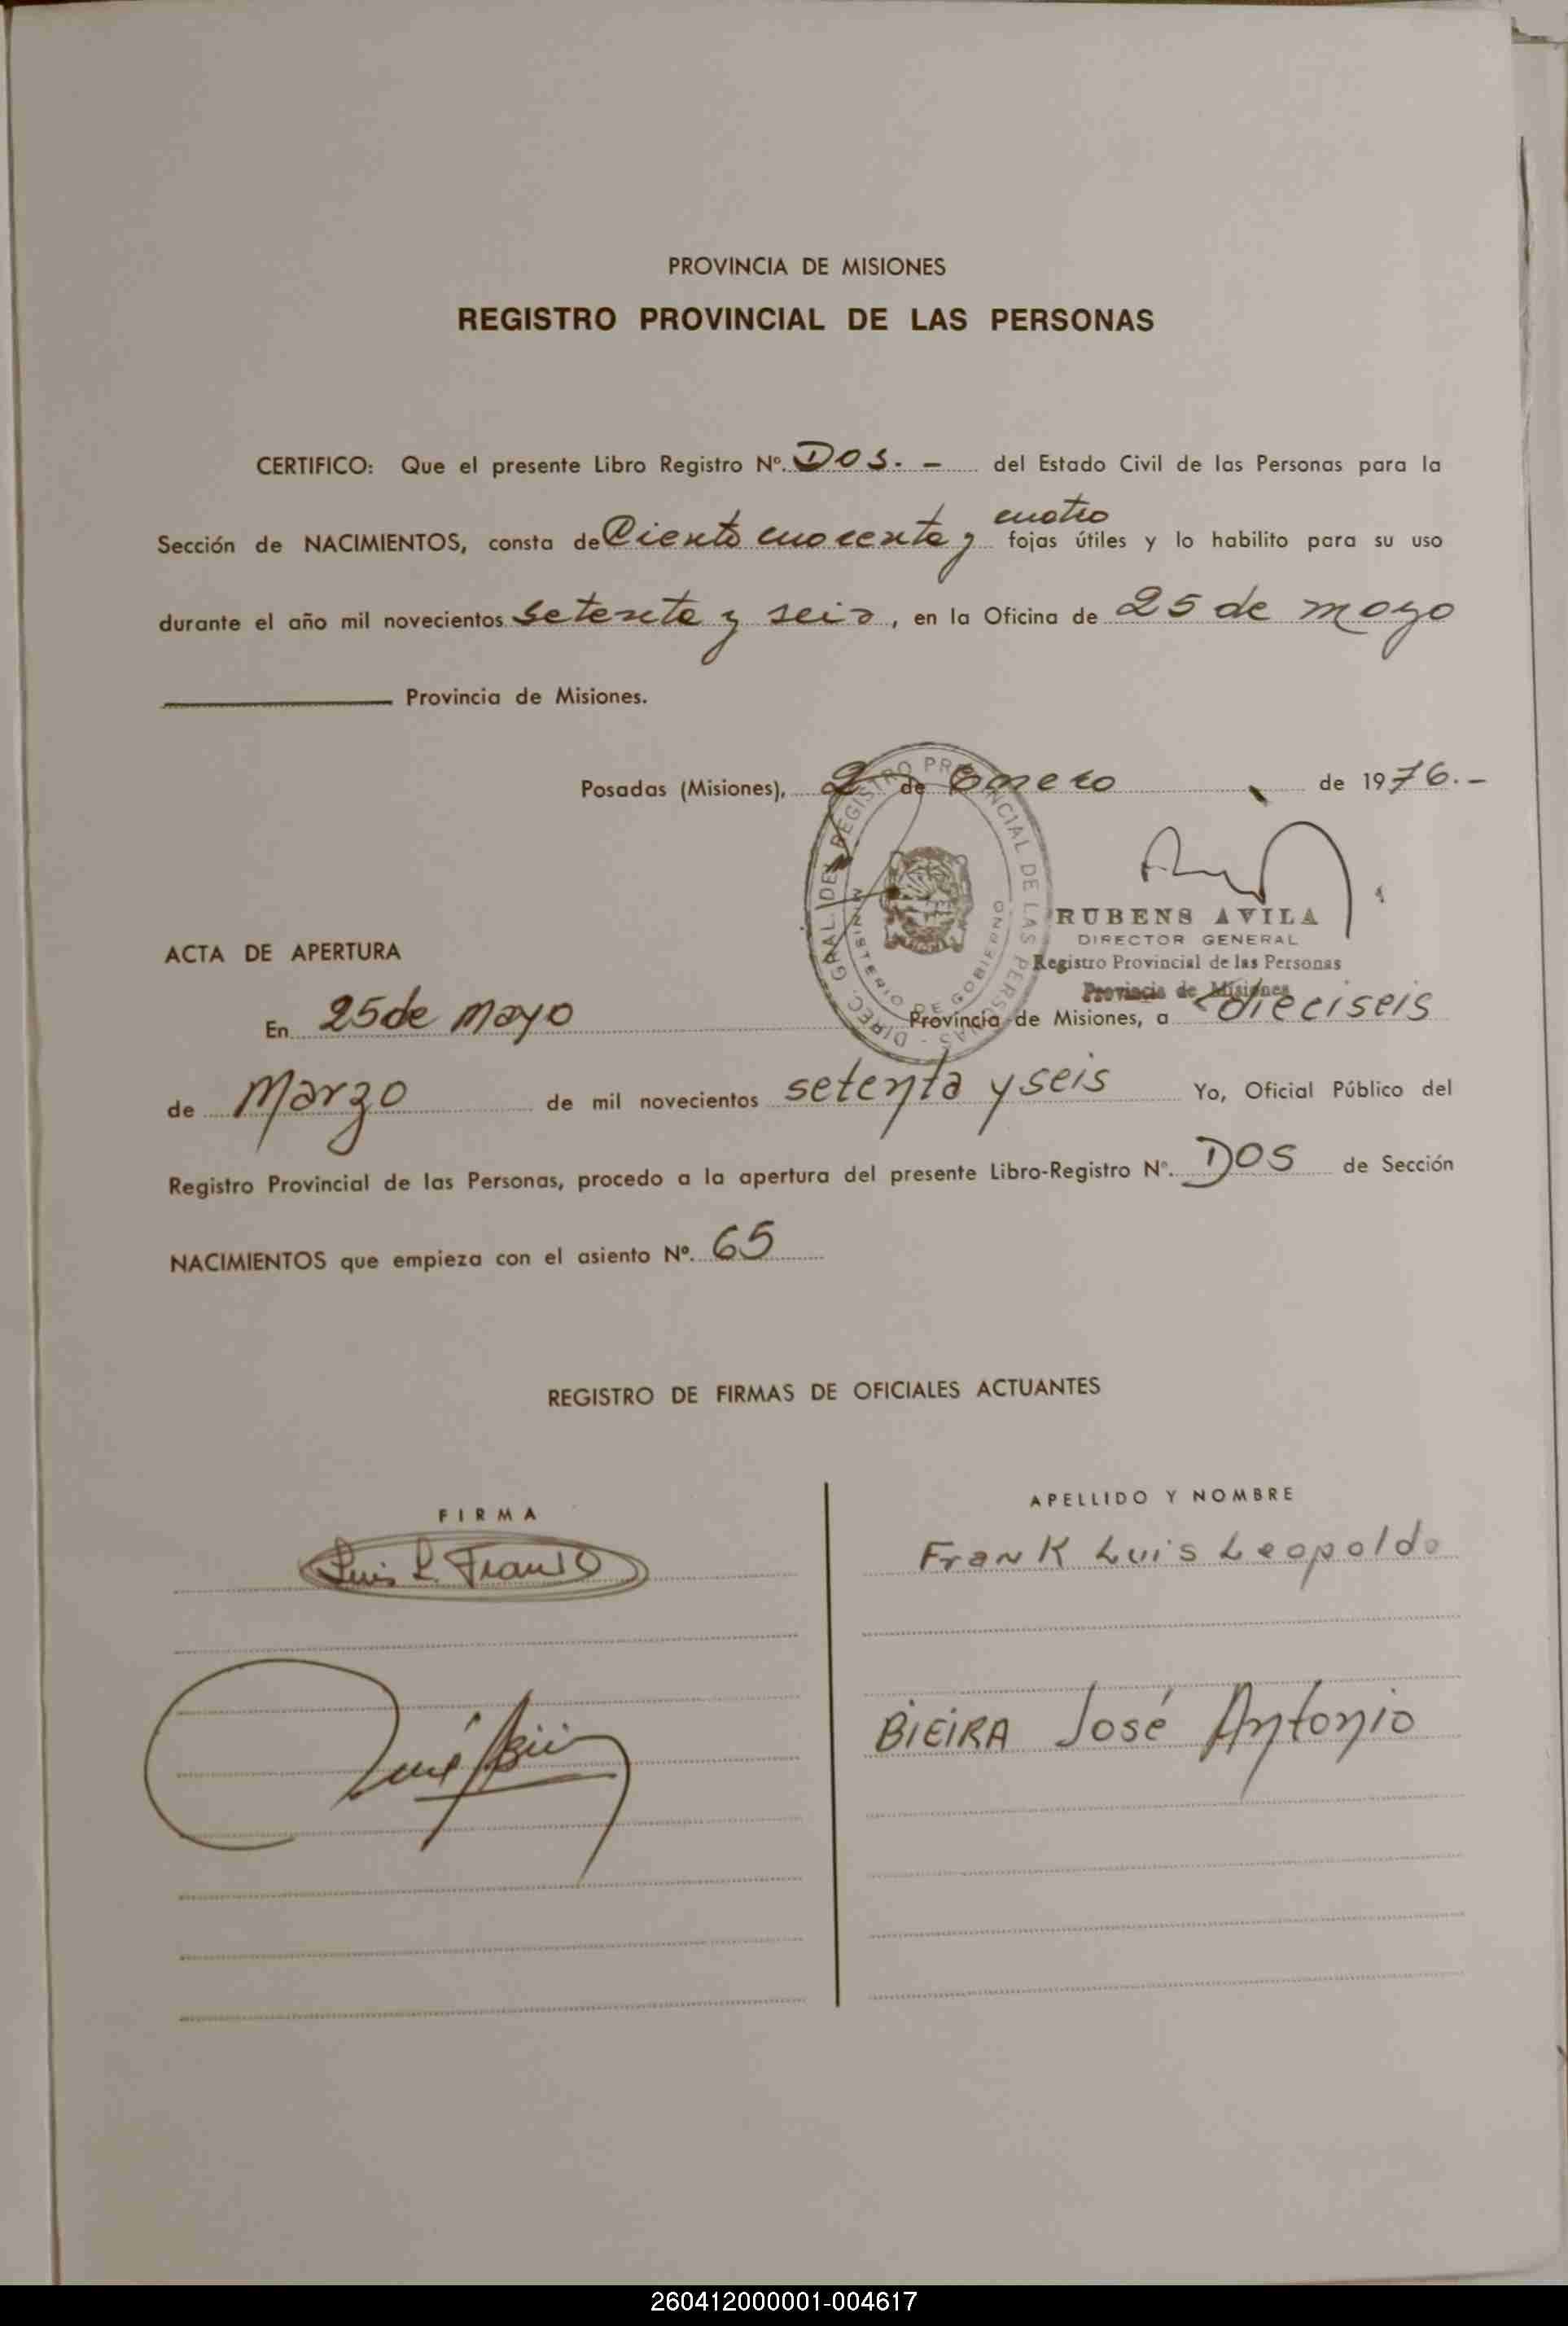 PROVINCIA DE MISIONES
REGISTRO PROVINCIAL DE LAS PERSONAS
CERTIFICO: Que el presente Libro Registro Nº. Dos. - del Estado Civil de las Personas para la
cuatro
Sección de NACIMIENTOS, consta de Ciento cuarenta y fojas útiles y lo habilito para su uso
durante el año mil novecientos setenta y seis, en la Oficina de 25 de mayo
Provincia de Misiones.
Posadas (Misiones), 2 de Enero de 1976.-
DIREC. GRAL. DEL REGISTRO PROVINCIAL DE LAS PERSONAS -
MINISTERIO DE GOBIERNO
RUBENS AVILA
DIRECTOR GENERAL
Registro Provincial de las Personas
Provincia de Misiones
ACTA DE APERTURA
En 25 de Mayo Provincia de Misiones, a dieciseis
de Marzo de mil novecientos setenta y seis Yo, Oficial Público del
Registro Provincial de las Personas, procedo a la apertura del presente Libro-Registro Nº. DOS de Sección
NACIMIENTOS que empieza con el asiento Nº. 65
REGISTRO DE FIRMAS DE OFICIALES ACTUANTES
FIRMA
APELLIDO Y NOMBRE
Luis L. Frank
Frank Luis Leopoldo
José Bieira
BIEIRA José Antonio
260412000001-004617